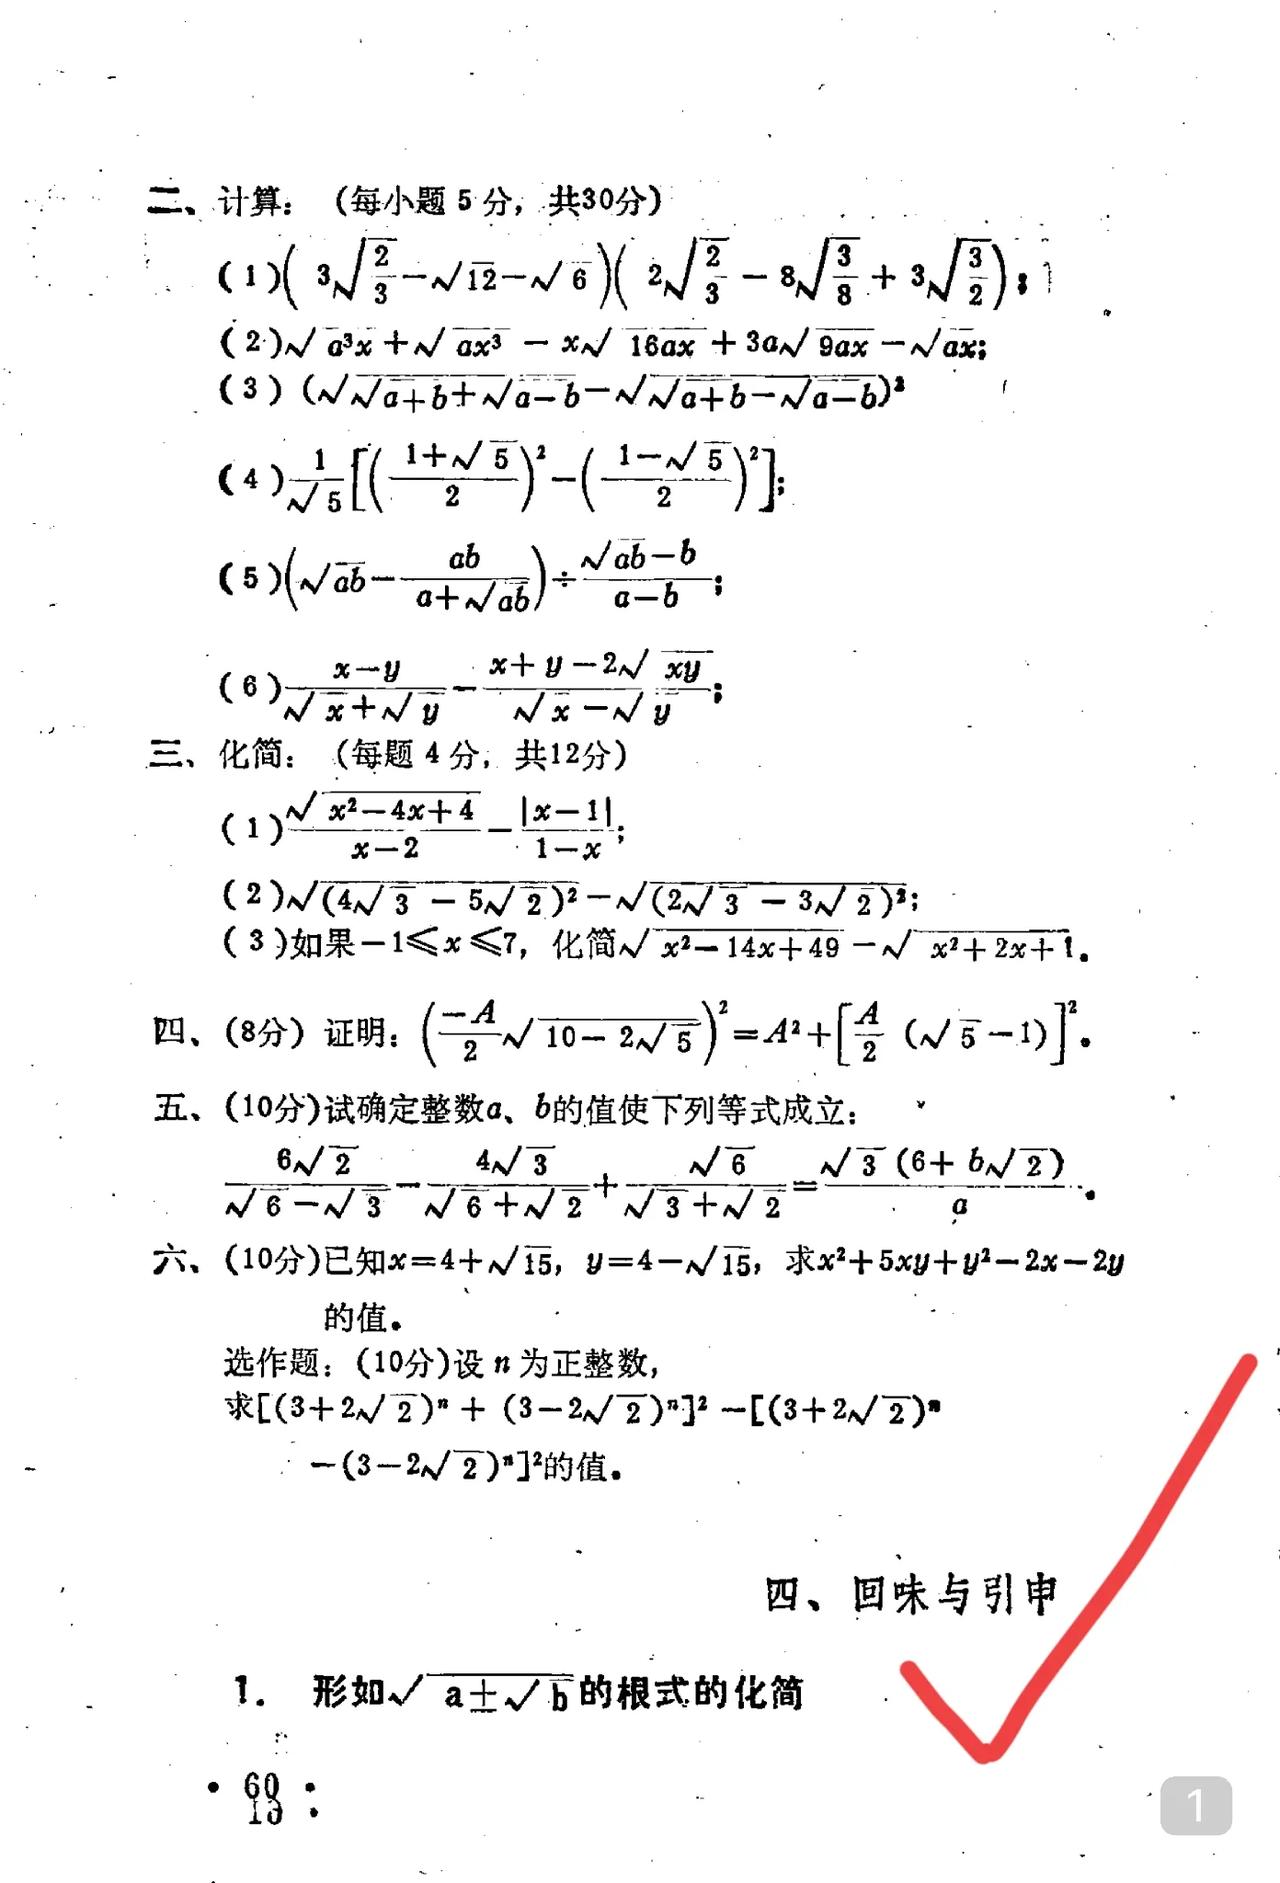 二、计算：（每小题5分，共30分）
(1)(3√(2/3)－√12－√6)(2√(2/3)－8√(3/8)＋3√(3/2))；
(2)√(a³x)＋√(ax³)－x√(16ax)＋3a√(9ax)－√(ax)；
(3)(√(√(a＋b)＋√(a－b))－√(√(a＋b)－√(a－b)))²
(4)1/√5[((1＋√5)/2)²－((1－√5)/2)²]；
(5)(√(ab)－ab/(a＋√(ab)))÷(√(ab)－b)/(a－b)；
(6)(x－y)/(√x＋√y)－(x＋y－2√(xy))/(√x－√y)；
三、化简：（每题4分，共12分）
(1)√(x²－4x＋4)/(x－2)－|x－1|/(1－x)；
(2)√((4√3－5√2)²)－√((2√3－3√2)²)；
(3)如果－1≤x≤7，化简√(x²－14x＋49)－√(x²＋2x＋1)。
四、(8分)证明：((－A)/2√(10－2√5))²＝A²＋[A/2(√5－1)]²。
五、(10分)试确定整数a、b的值使下列等式成立：
6√2/(√6－√3)－4√3/(√6＋√2)＋√6/(√3＋√2)＝√3(6＋b√2)/a。
六、(10分)已知x＝4＋√15，y＝4－√15，求x²＋5xy＋y²－2x－2y
的值。
选作题：(10分)设n为正整数，
求[(3＋2√2)ⁿ＋(3－2√2)ⁿ]²－[(3＋2√2)ⁿ
－(3－2√2)ⁿ]²的值。
四、回味与引申
1. 形如√(a±√b)的根式的化简
• 60 •
1